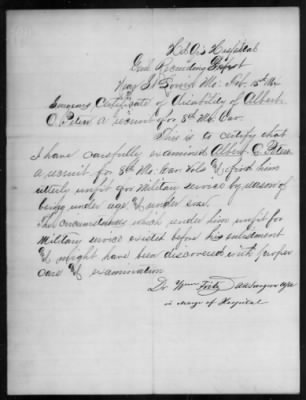 Hospital
Genl Recruiting Depot
Near St Louis Mo: Feb. 15th
Surgeons Certificate of disability of Albert
C. Peters a recruit for 8th Mo. Cav.
This is to certify that
I have carefully examined Albert C. Peters
a recruit for 8th Mo. Cav. Vols & find him
utterly unfit for Military service by reason of
being under age & under size.
The circumstances which under him unfit for
Military service existed before his enlistment
& might have been discovered with proper
care of examination
Dr. Wm Fritz
in charge of Hospital